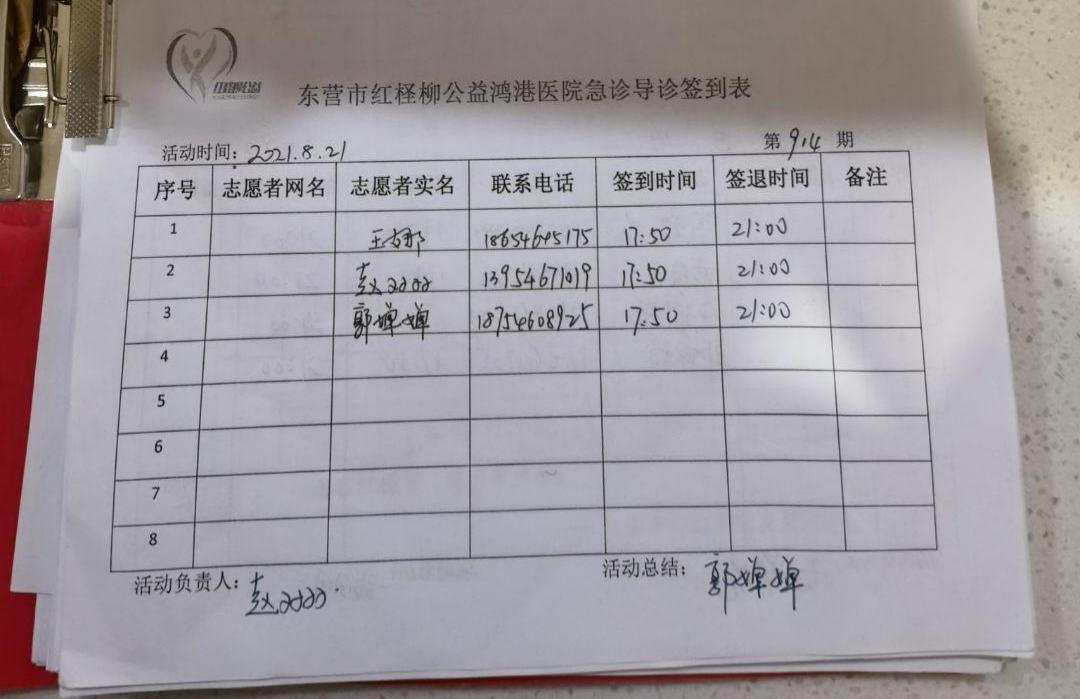 红柽柳公益
东营市红柽柳公益鸿港医院急诊导诊签到表
活动时间: 2021.8.21 第 914 期
序号 志愿者网名 志愿者实名 联系电话 签到时间 签退时间 备注
1 王 那 18654645175 17:50 21:00
2 赵 13954671019 17:50 21:00
3 郭婵婵 18754608925 17:50 21:00
4
5
6
7
8
活动负责人: 赵 活动总结: 郭婵婵